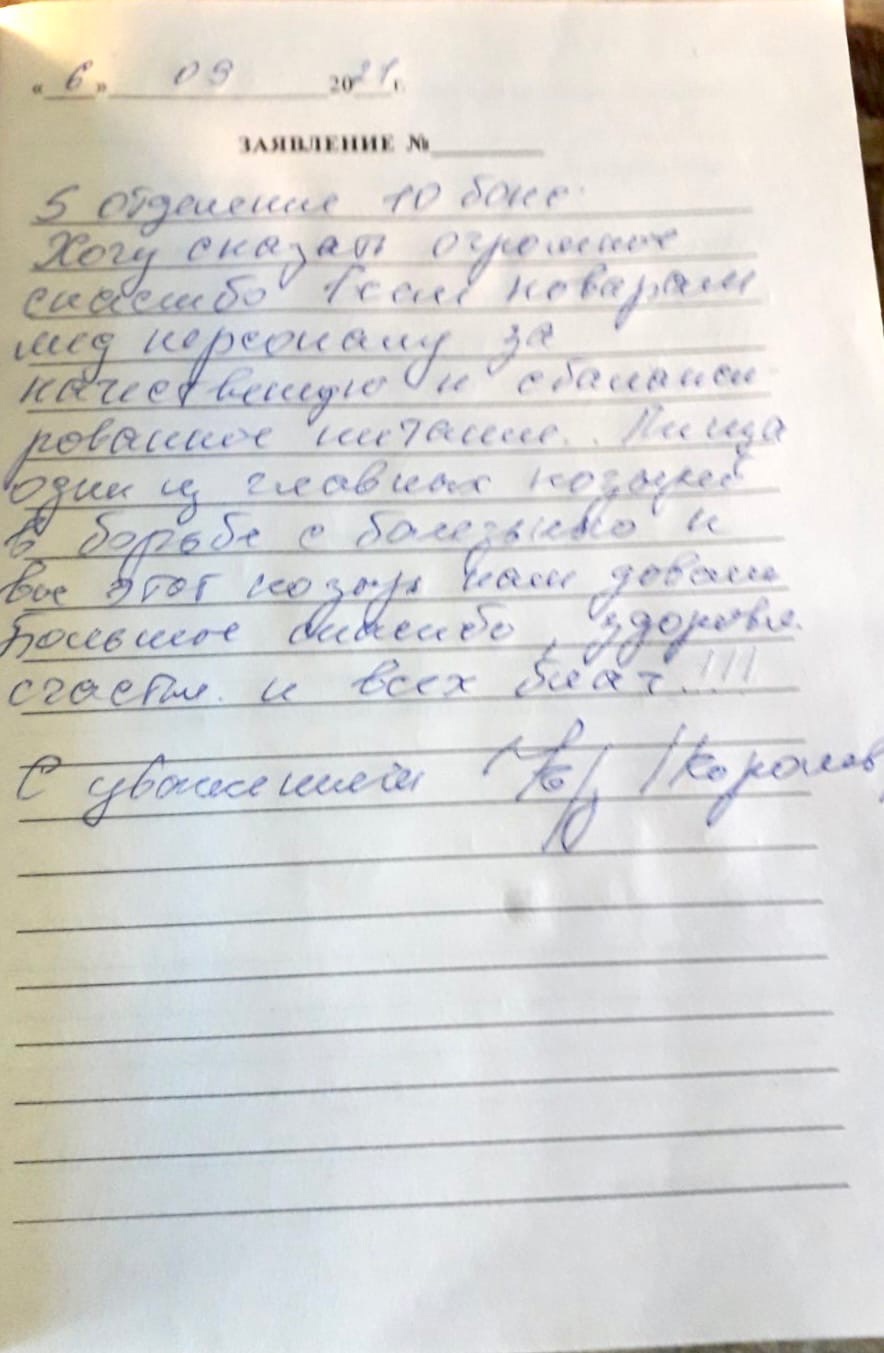 « 6 » 09 2021 г.
ЗАЯВЛЕНИЕ № 
5 отделение 10 бокс.
Хочу сказать огромное
спасибо всем поварам
мед персоналу за
качественную и сбаланси
рованное питание.. Пища
один из главных козырей
в борьбе с болезнью и
вы этот козырь нам давали
Большое спасибо, здоровья.
счастья. и всех благ.!!!
С уважением /Королев